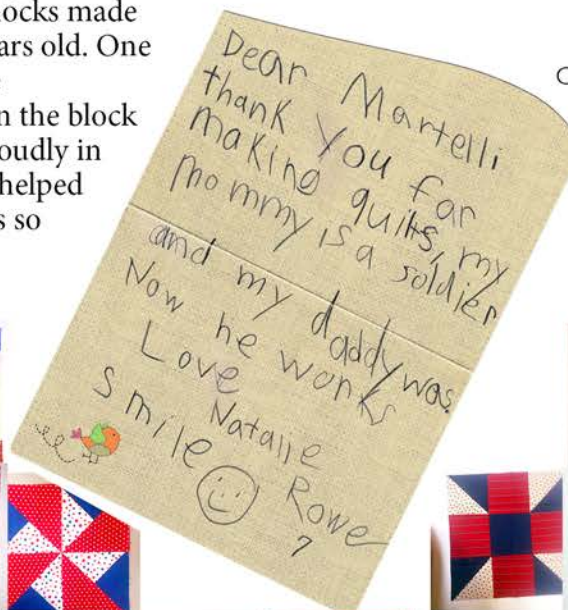 locks made
ars old. One
n the block
oudly in
helped
s so
Dear Martelli
thank you for
making quilts, my
mommy is a soldier
and my daddy was.
Now he works
Love
Natalie
smile Rowe
7